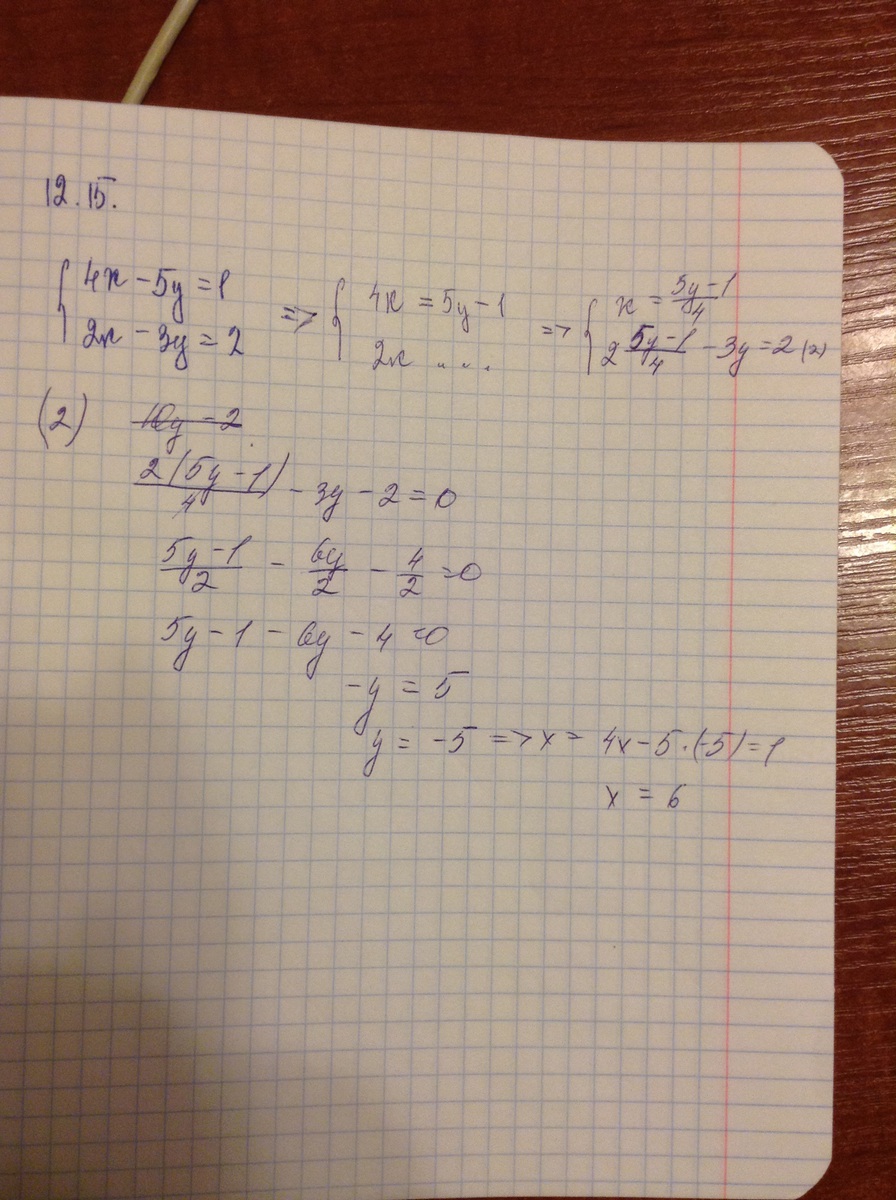 12.15.
{ 4x - 5y = 1 => { 4x = 5y - 1 => { x = (5y - 1)/4
2x - 3y = 2 2x ... 2 (5y - 1)/4 - 3y = 2 (2)
(2) 10y - 2
2(5y - 1)/4 - 3y - 2 = 0
(5y - 1)/2 - 6y/2 - 4/2 = 0
5y - 1 - 6y - 4 = 0
-y = 5
y = -5 => x = 4x - 5 · (-5) = 1
x = 6